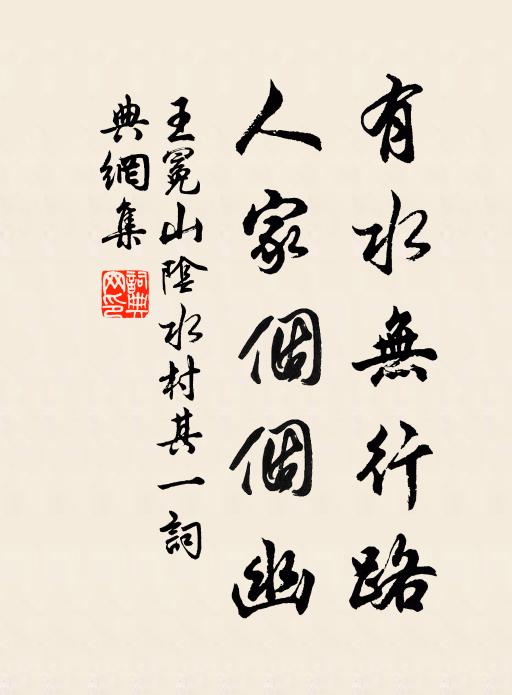 有水無行路
人家個個幽
王冕山陰水村其一詞
典網集
詞典
網印